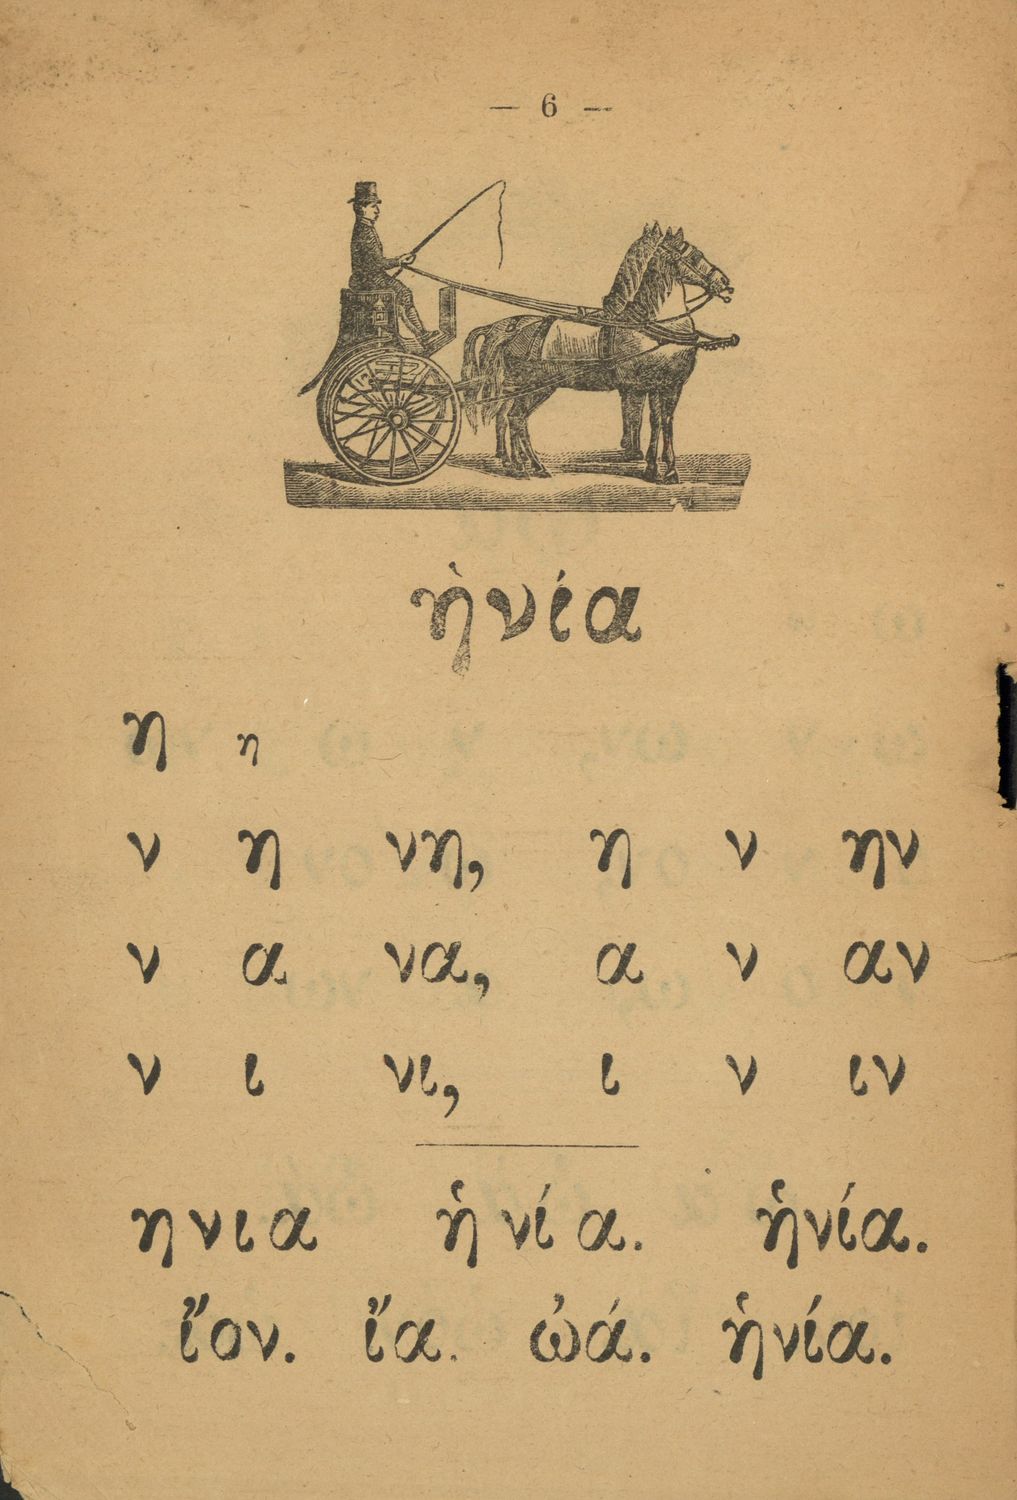 — 6 —
ἡνία
η η
ν η νη, η ν ην
ν α να, α ν αν
ν ι νι, ι ν ιν
η ν ι α ἡ νί α. ἡνία.
ἴον. ἴα. ὠά. ἡνία.